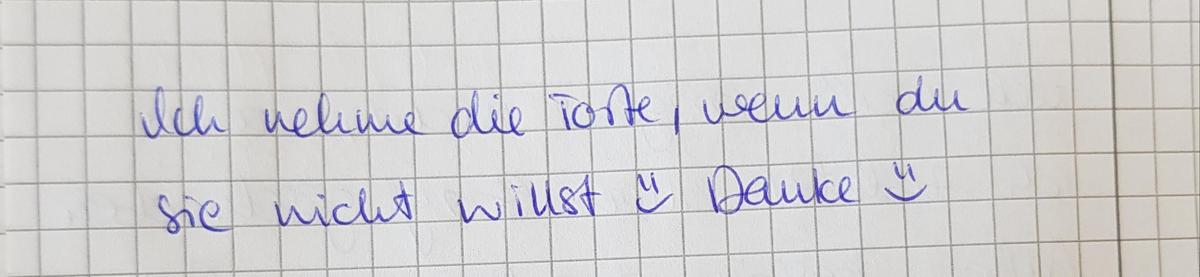 Ich nehme die Torte, wenn du
sie nicht willst :) Danke :)